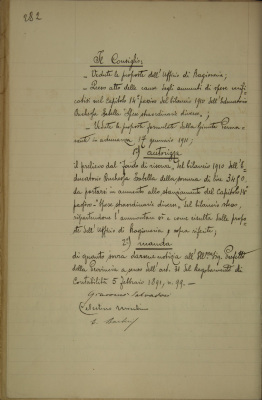 282
Il Consiglio
- Vedute le proposte dell'Ufficio di Ragioneria;
- Preso atto delle cause degli aumenti di spese verifi-
catisi nel Capitolo 14° passivo del bilancio 1910 dell'Educatorio
Duchessa Isabella "Spese straordinarie diverse";
- Vedute le proposte formulate dalla Giunta Perma-
nente in adunanza 17 gennaio 1911;
1°) autorizza
il prelievo dal "Fondo di riserva" del bilancio 1910 dell'E-
ducatorio Duchessa Isabella della somma di lire
da portarsi in aumento allo stanziamento del Capitolo 14°
passivo "Spese straordinarie diverse" del bilancio stesso,
ripartendone l'ammontare come risulta dalle propo-
ste dell'Ufficio di Ragioneria, sopra riferite;
2°) manda
di quanto sovra darsene notizia all'Ill.mo Sig. Prefetto
della Provincia a senso dell'art. del Regolamento di
Contabilità 5 febbraio 1891, n. 99. -